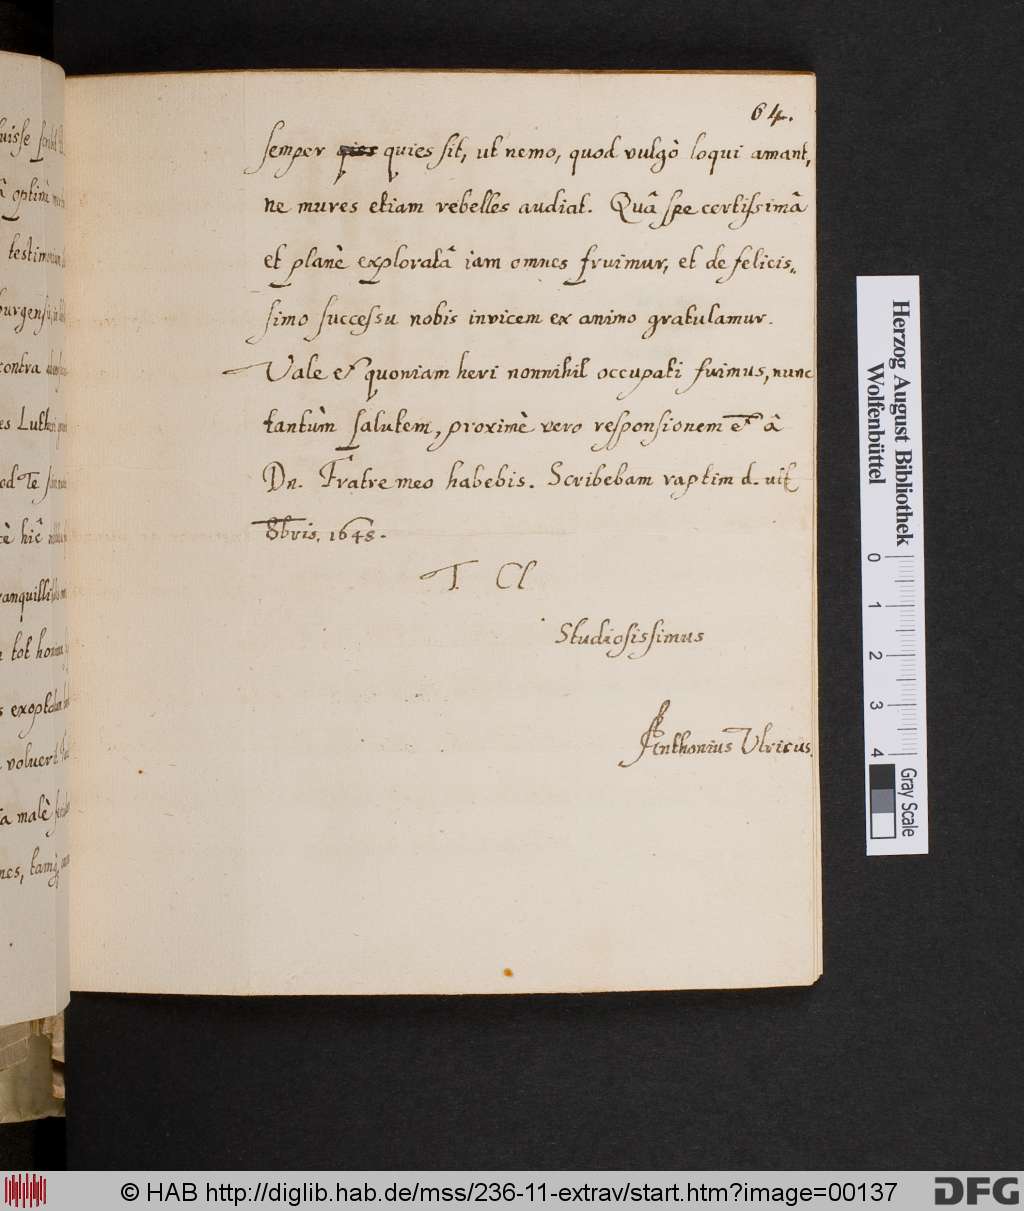 64.
semper quies sit, ut nemo, quod vulgò loqui amant,
ne mures etiam rebelles audiat. Quâ spe certissimâ
et planè exploratâ iam omnes fruimur, et de felicis„
simo successu nobis invicem ex animo gratulamur.
Vale et quoniam heri nonnihil occupati fuimus, nunc
tantùm salutem, proximè vero responsionem et â
Dn. Fratre meo habebis. Scribebam raptim d. ult
8bris. 1648.
T. Cl
Studiosissimus
Anthonius Ulricus.
testimo
contra
es Luth
od Te
hîc
ranquilli
tot
voluer
malè
Herzog August Bibliothek
Wolfenbüttel
0 1 2 3 4
Gray Scale
© HAB http://diglib.hab.de/mss/236-11-extrav/start.htm?image=00137
DFG